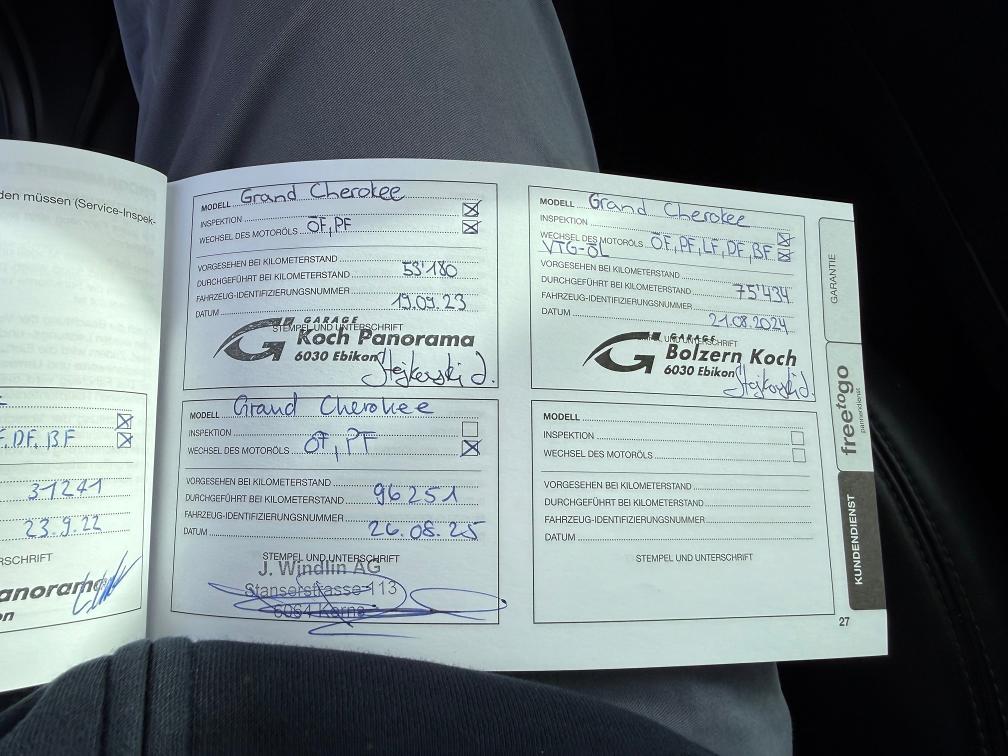 den müssen (Service-Inspek-
F, DF, BF
31241
23.9.22
RSCHRIFT
anorama
on
MODELL Grand Cherokee
INSPEKTION
WECHSEL DES MOTORÖLS ÖF, PF
VORGESEHEN BEI KILOMETERSTAND
DURCHGEFÜHRT BEI KILOMETERSTAND 53'180
FAHRZEUG-IDENTIFIZIERUNGSNUMMER
DATUM 19.09.23
STEMPEL UND UNTERSCHRIFT
GARAGE
Koch Panorama
6030 Ebikon
MODELL Grand Cherokee
INSPEKTION
WECHSEL DES MOTORÖLS ÖF, PF
VORGESEHEN BEI KILOMETERSTAND
DURCHGEFÜHRT BEI KILOMETERSTAND 96251
FAHRZEUG-IDENTIFIZIERUNGSNUMMER
DATUM 26.08.25
STEMPEL UND UNTERSCHRIFT
J. Windlin AG
Stanserstrasse 113
6064 Kerns
MODELL Grand Cherokee
INSPEKTION
WECHSEL DES MOTORÖLS ÖF, PF, LF, DF, BF
VTG-ÖL
VORGESEHEN BEI KILOMETERSTAND
DURCHGEFÜHRT BEI KILOMETERSTAND 75'434
FAHRZEUG-IDENTIFIZIERUNGSNUMMER
DATUM 21.08.2024
UNTERSCHRIFT
GARAGE
Bolzern Koch
6030 Ebikon
MODELL
INSPEKTION
WECHSEL DES MOTORÖLS
VORGESEHEN BEI KILOMETERSTAND
DURCHGEFÜHRT BEI KILOMETERSTAND
FAHRZEUG-IDENTIFIZIERUNGSNUMMER
DATUM
STEMPEL UND UNTERSCHRIFT
GARANTIE
freetogo
pannendienst
KUNDENDIENST
27